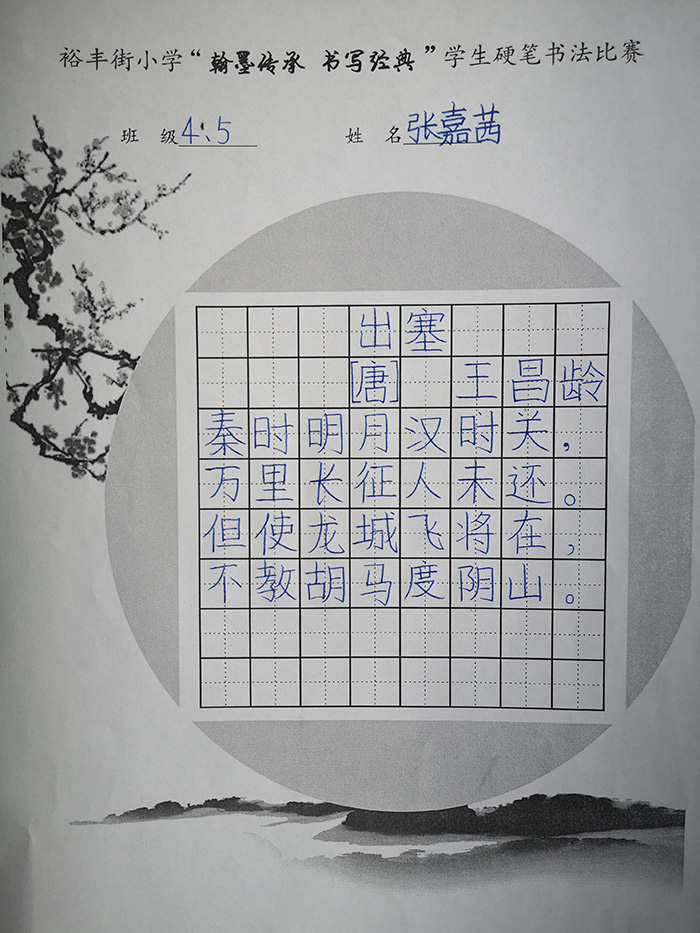 裕丰街小学“翰墨传承 书写经典”学生硬笔书法比赛
班 级 4.5 姓 名 张嘉茜
出塞
[唐] 王昌龄
秦时明月汉时关，
万里长征人未还。
但使龙城飞将在，
不教胡马度阴山。